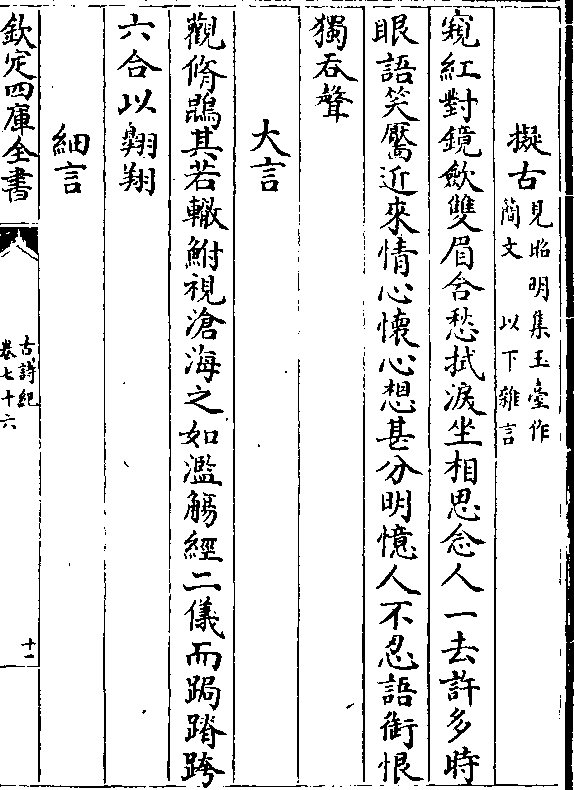 擬古見昭明集玉臺作
簡文 以下雜言
窺紅對鏡歛雙眉含愁拭淚坐相思念人一去許多時
眼語笑靨近來情心懷心想甚分明憶人不忍語銜恨
獨吞聲
大言
觀脩鵾其若轍鮒視滄海之如濫觴經二儀而跼蹐跨
六合以翱翔
細言
欽定四庫全書
古詩紀
卷七十六
十一